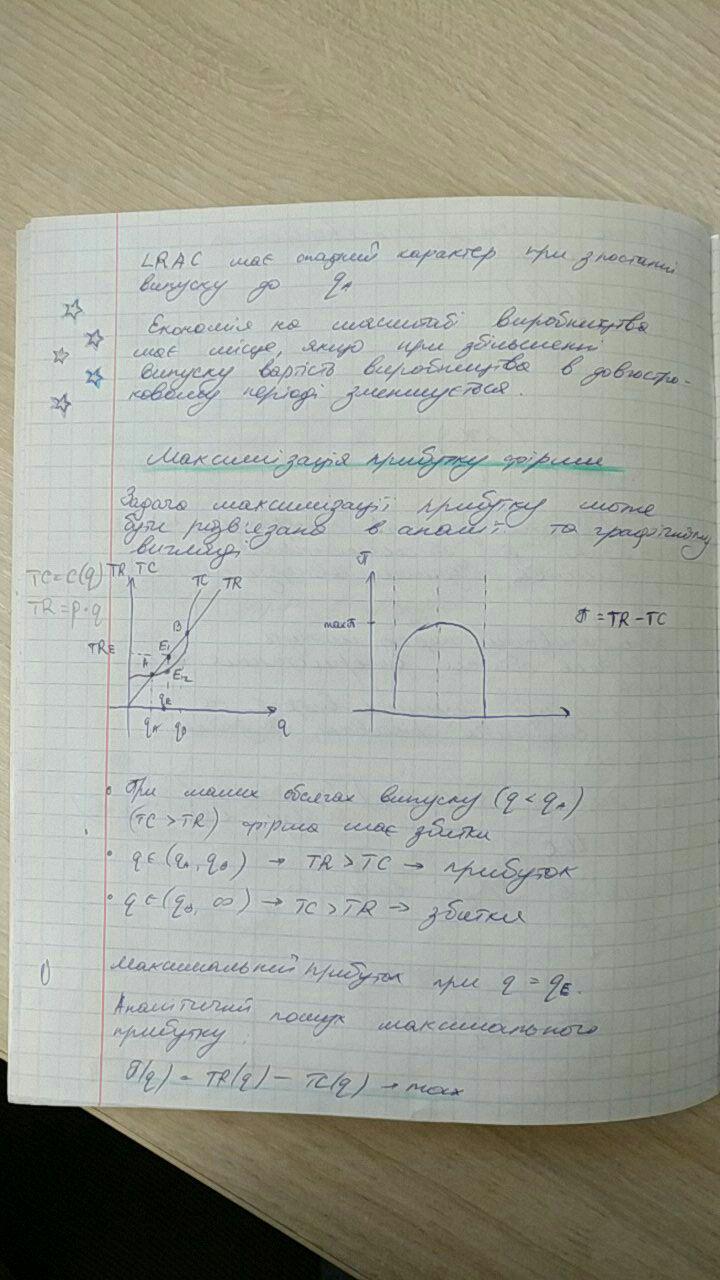 LRAC має спадний характер при зростанні
випуску до qA
Економія на масштабі виробництва
має місце, якщо при збільшенні
випуску вартість виробництва в довгостро-
ковому періоді зменшується.
Максимізація прибутку фірми
Задача максимізації прибутку може
бути розв'язана в аналіт та графічному
вигляді
TC=C(q)
TR=p·q
TR, TC
TC
TR
B
TRE
A
E1
E2
qE
qA
qB
q
π
max π
π = TR - TC
• При малих обсягах випуску (q < qA)
(TC > TR) фірма має збитки
• q ∈ (qA, qB) → TR > TC → прибуток
• q ∈ (qB, ∞) → TC > TR → збитки
Максимальний прибуток при q = qE.
Аналітичний пошук максимального
прибутку:
π(q) = TR(q) - TC(q) → max